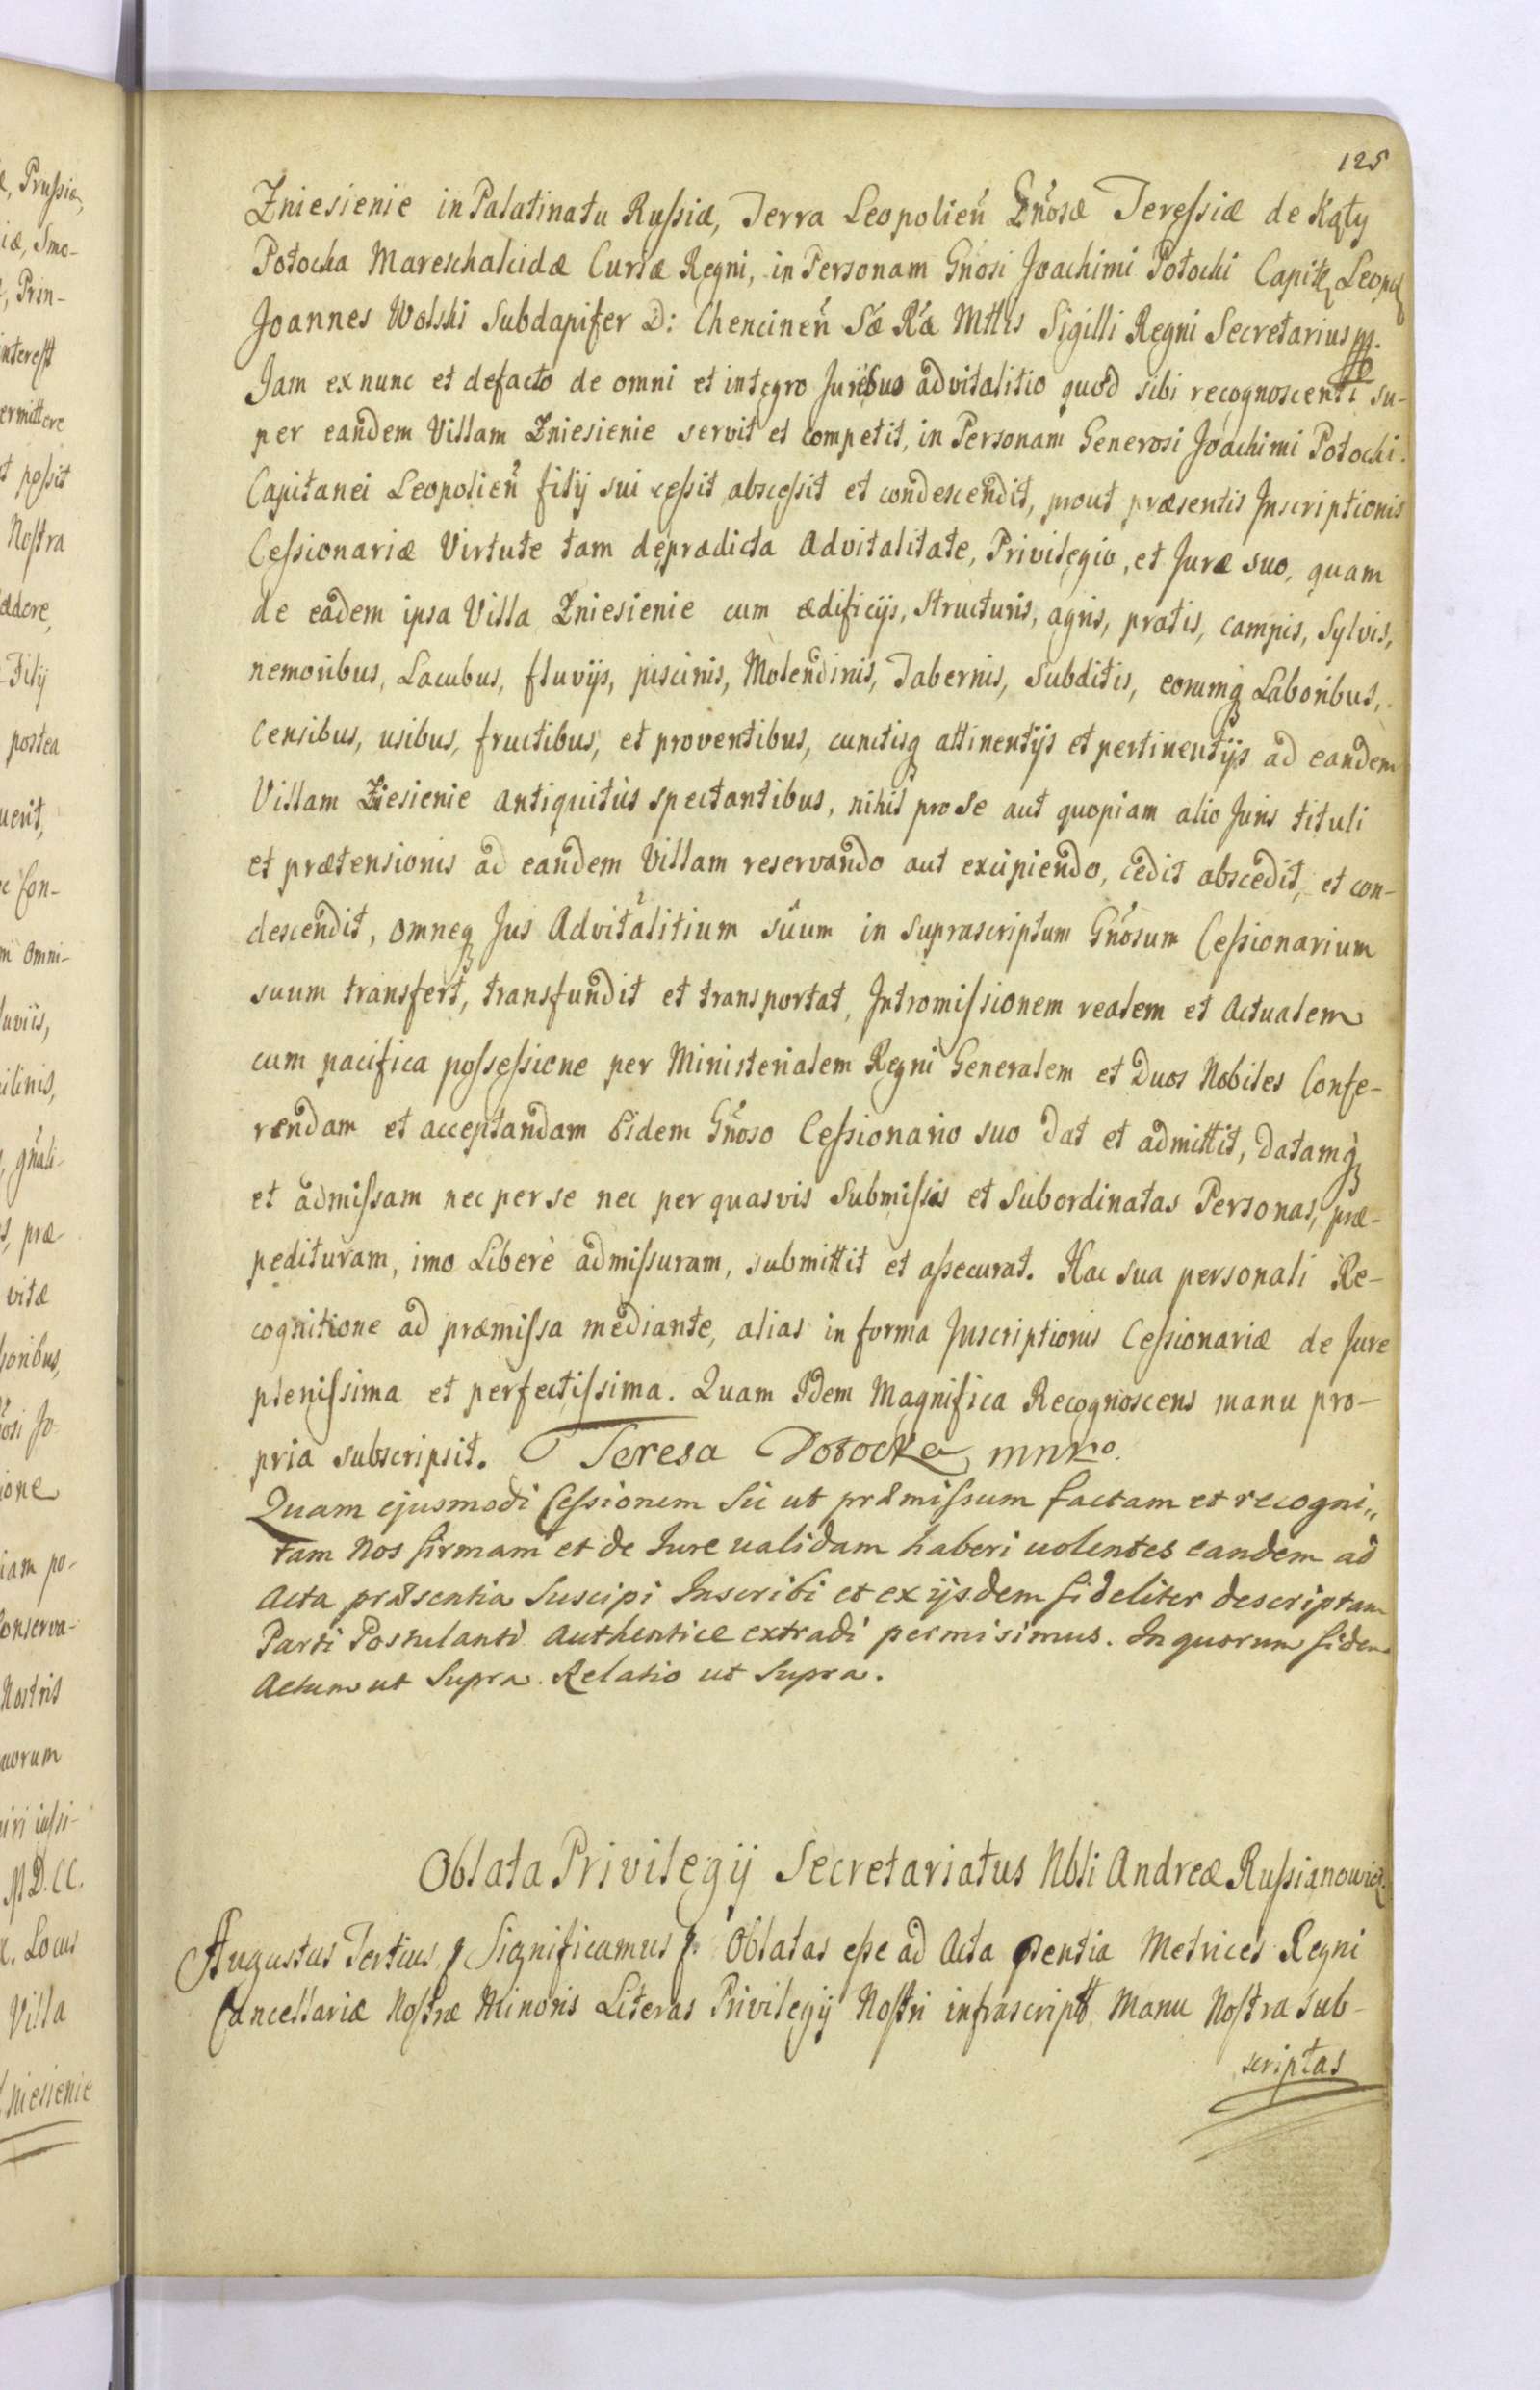 125
Zniesienie in Palatinatu Rußiæ, Terra Leopolień Gńosæ Tereßiæ de Kąty
Potocka Mareschalcidæ Curiæ Regni, in Personam Gńosi Joachimi Potocki Capitę Leopol
Joannes Wolski Subdapifer D: Chencinéń Sæ Ræ Mttis Sigilli Regni Secretarius mp.
Jam ex nunc et defacto de omni et integro Juribus advitalitio quod sibi recognoscenti su-
per eandem Villam Zniesienie servit et competit, in Personam Generosi Joachimi Potocki.
Capitanei Leopolień filij sui ceßit absceßit et condescendit, prout præsentis Inscriptionis
Ceßionariæ Virtute tam de prædicta Advitalitate, Privilegio, et Juræ suo, quam
de eadem ipsa Villa Zniesienie cum ædificijs, structuris, agris, pratis, campis, Sylvis,
nemoribus, Lacubus, fluvijs, piscinis, Molendinis, Tabernis, Subditis, eorumq Laboribus,
Censibus, usibus, fructibus, et proventibus, cunctisq attinentijs et pertinentijs ad eandem
Villam Ziesienie antiquitùs spectantibus, nihil pro se aut quopiam alio Juris tituli
et prætensionis ad eandem Villam reservando aut excipiendo, cedit abscedit, et con-
descendit, omneq Jus Advitalitium suum in suprascriptum Gńosum Ceßionarium
suum transfert, transfundit et transportat, Intromißionem realem et Actualem
cum pacifica poßeßione per Ministerialem Regni Generalem et Duos Nobiles Confe-
rendam et acceptandam Eidem Gńoso Ceßionario suo dat et admittit, datamq
et admißam nec per se nec per quasvis Submißas et Subordinatas Personas, præ-
pedituram, imo Liberè admißuram, submittit et aßecurat. Hac sua personali Re-
cognitione ad præmißa mediante, alias in forma Inscriptionis Ceßionariæ de Jure
plenißima et perfectißima. Quam Idem Magnifica Recognoscens manu pro-
pria subscripsit. Teresa Potocka mnpo.
Quam ejusmodi Ceßionem Sic ut præmißum factam et recogni„
tam Nos firmam et de Iure ualidam haberi uolentes eandem ad
Acta præsentia Suscipi Inscribi et ex ijsdem fideliter descriptam
Parti Postulanti Authentice extradi permisimus. In quorum fidem
Actum ut Supra. Relatio ut Supra.
Oblata Privilegij Secretariatus Nbli Andreæ Rußianowicz
Augustus Tertius p Significamus p. Oblatas eße ad Acta pentia Metrices Regni
Cancellariæ Nostræ Minoris Literas Privilegij Nostri infrascript Manu Nostra sub-
scriptas